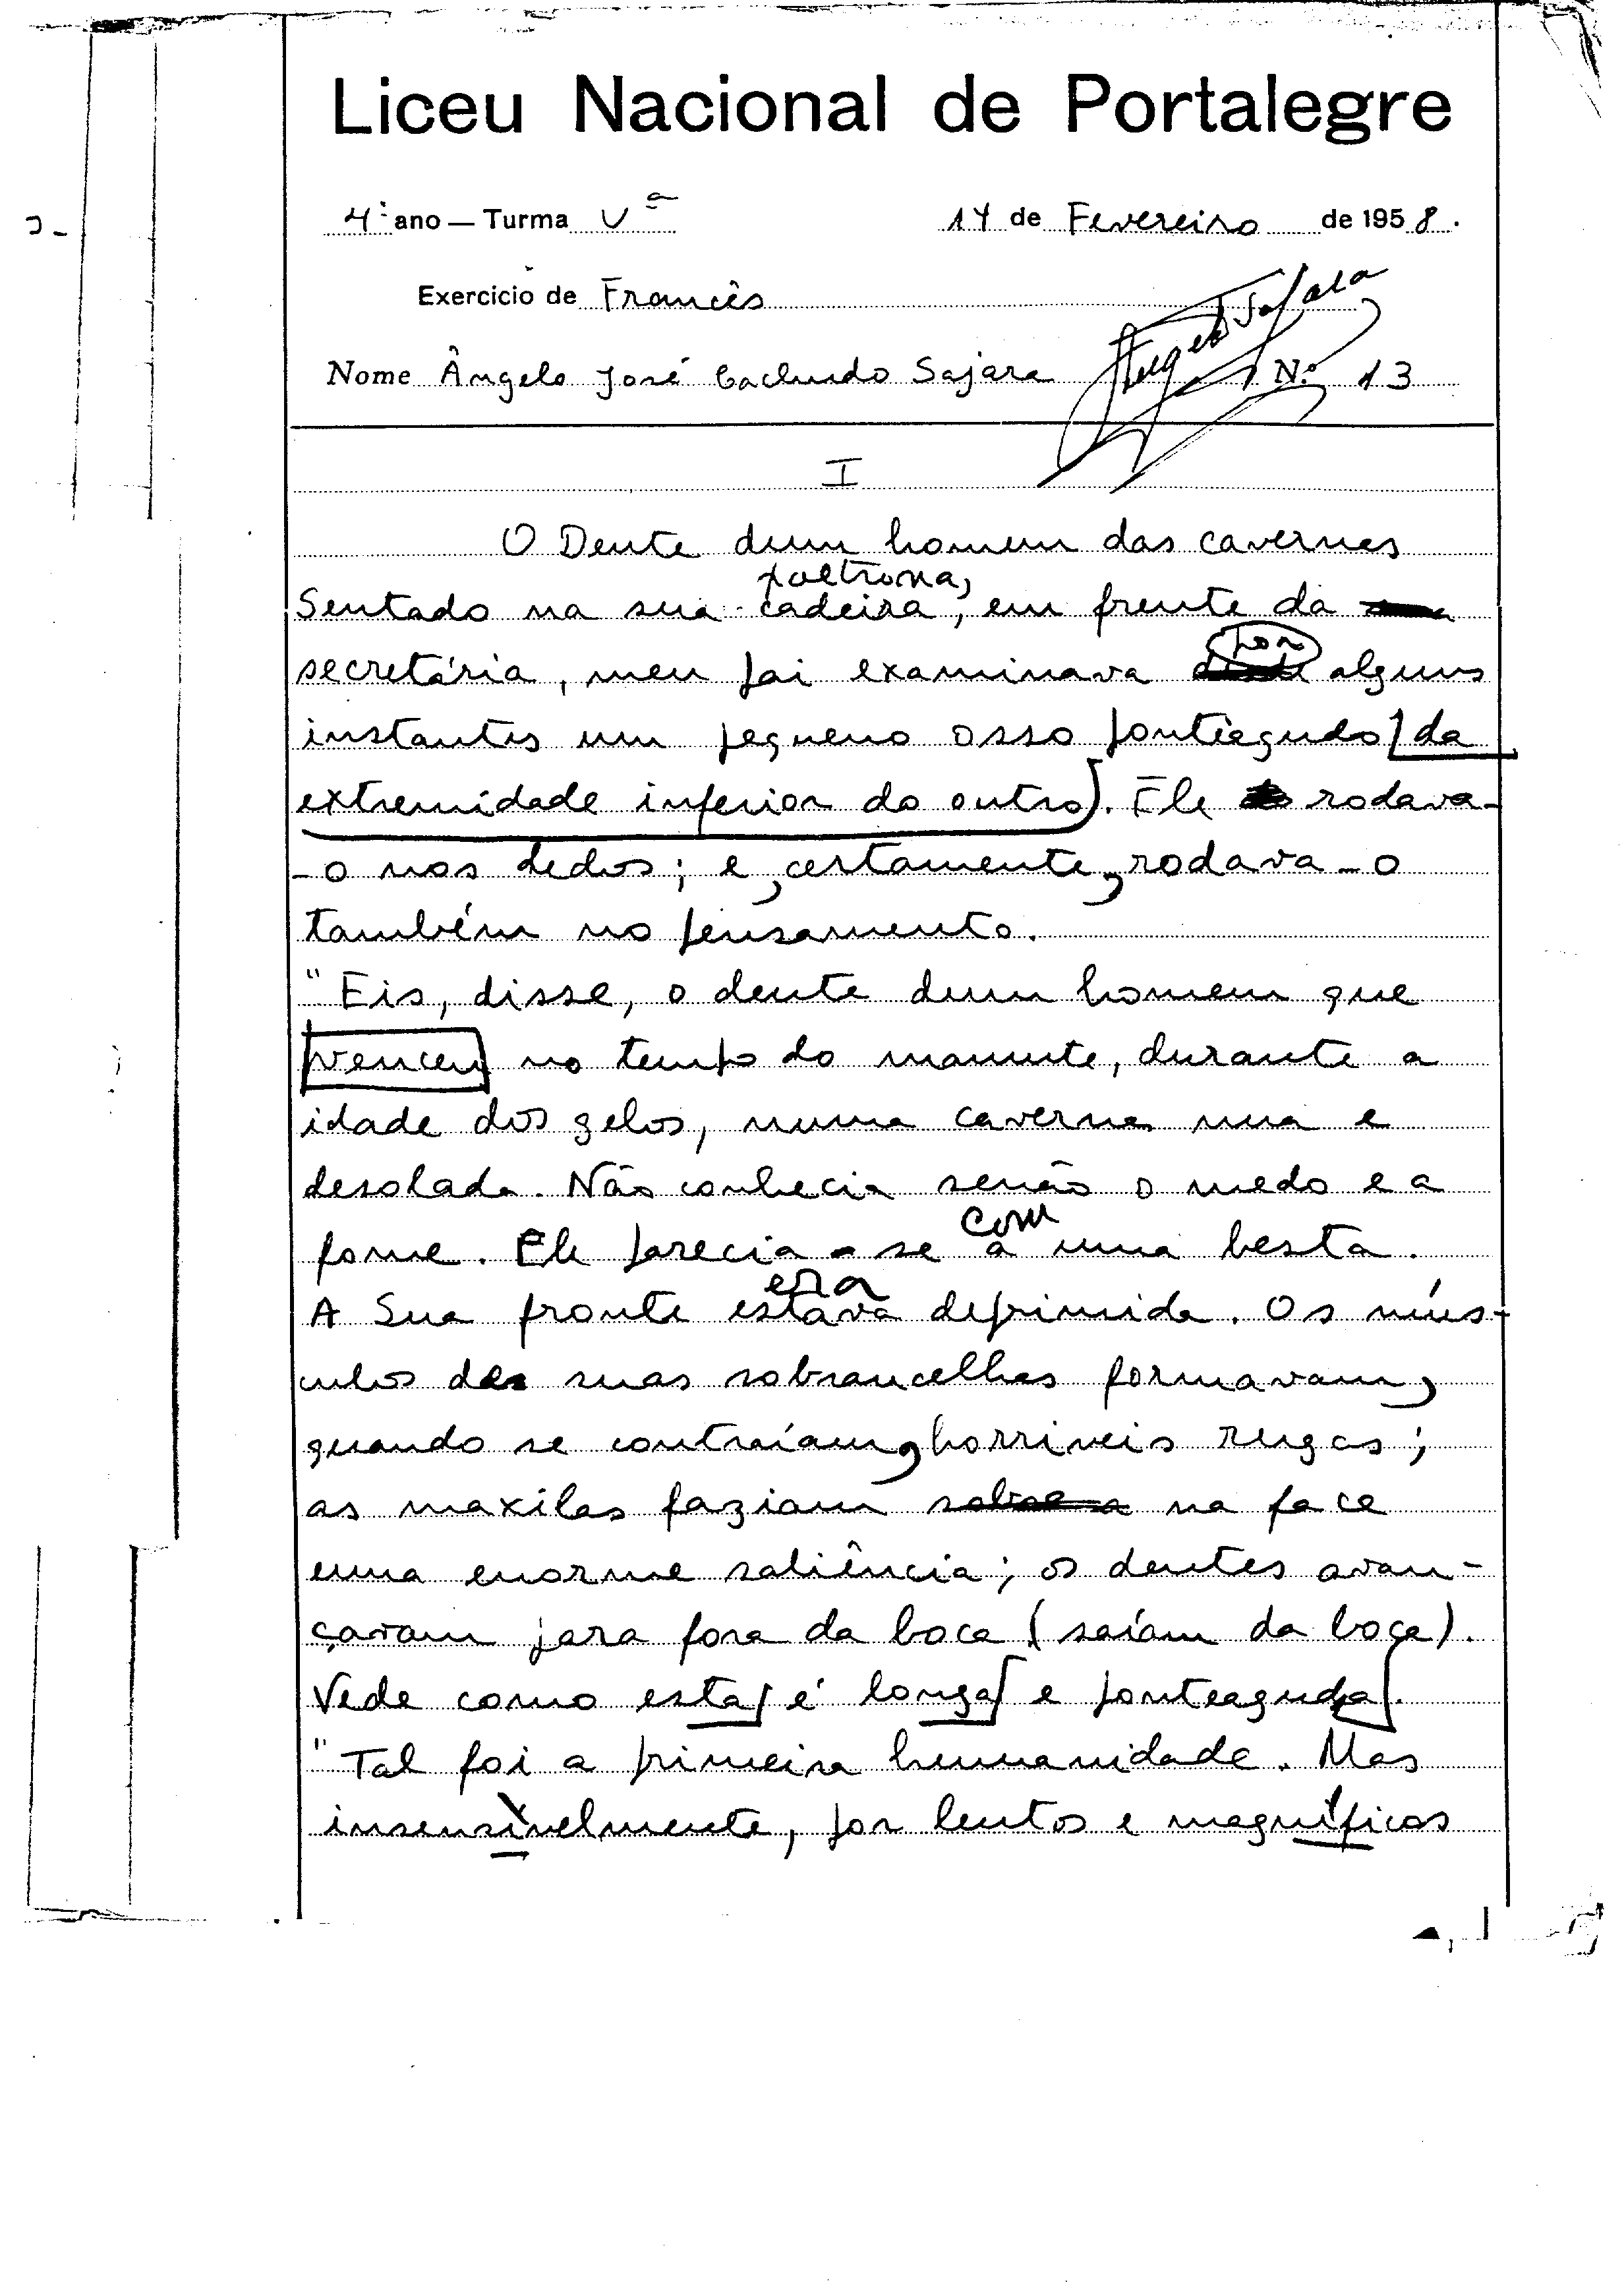 Liceu Nacional de Portalegre
4º ano — Turma V ª 14 de Fevereiro de 1958.
Exercício de Francês
Nome Ângelo José Sajara Nº 13
I
O Dente dum homem das cavernas
poltrona,
Sentado na sua cadeira, em frente da
por
secretária, meu pai examinava alguns
instantes um pequeno osso pontiagudo [da
extremidade inferior do outro]. Ele rodava-
-o nos dedos; e, certamente, rodava-o
também no pensamento.
"Eis, disse, o dente dum homem que
venceu no tempo do mamute, durante a
idade dos gelos, numa caverna nua e
desolada. Não conhecia senão o medo e a
com
fome. Ele parecia-se a uma besta.
era
A Sua fronte estava deprimida. Os mús-
culos das suas sobrancelhas formavam,
quando se contraíam, horriveis rugas;
as maxilas faziam na face
uma enorme saliência; os dentes avan-
çavam para fora da boca (saíam da boca).
Vede como esta é longa e ponteaguda.
"Tal foi a primeira humanidade. Mas
insensivelmente, por lentos e magníficos